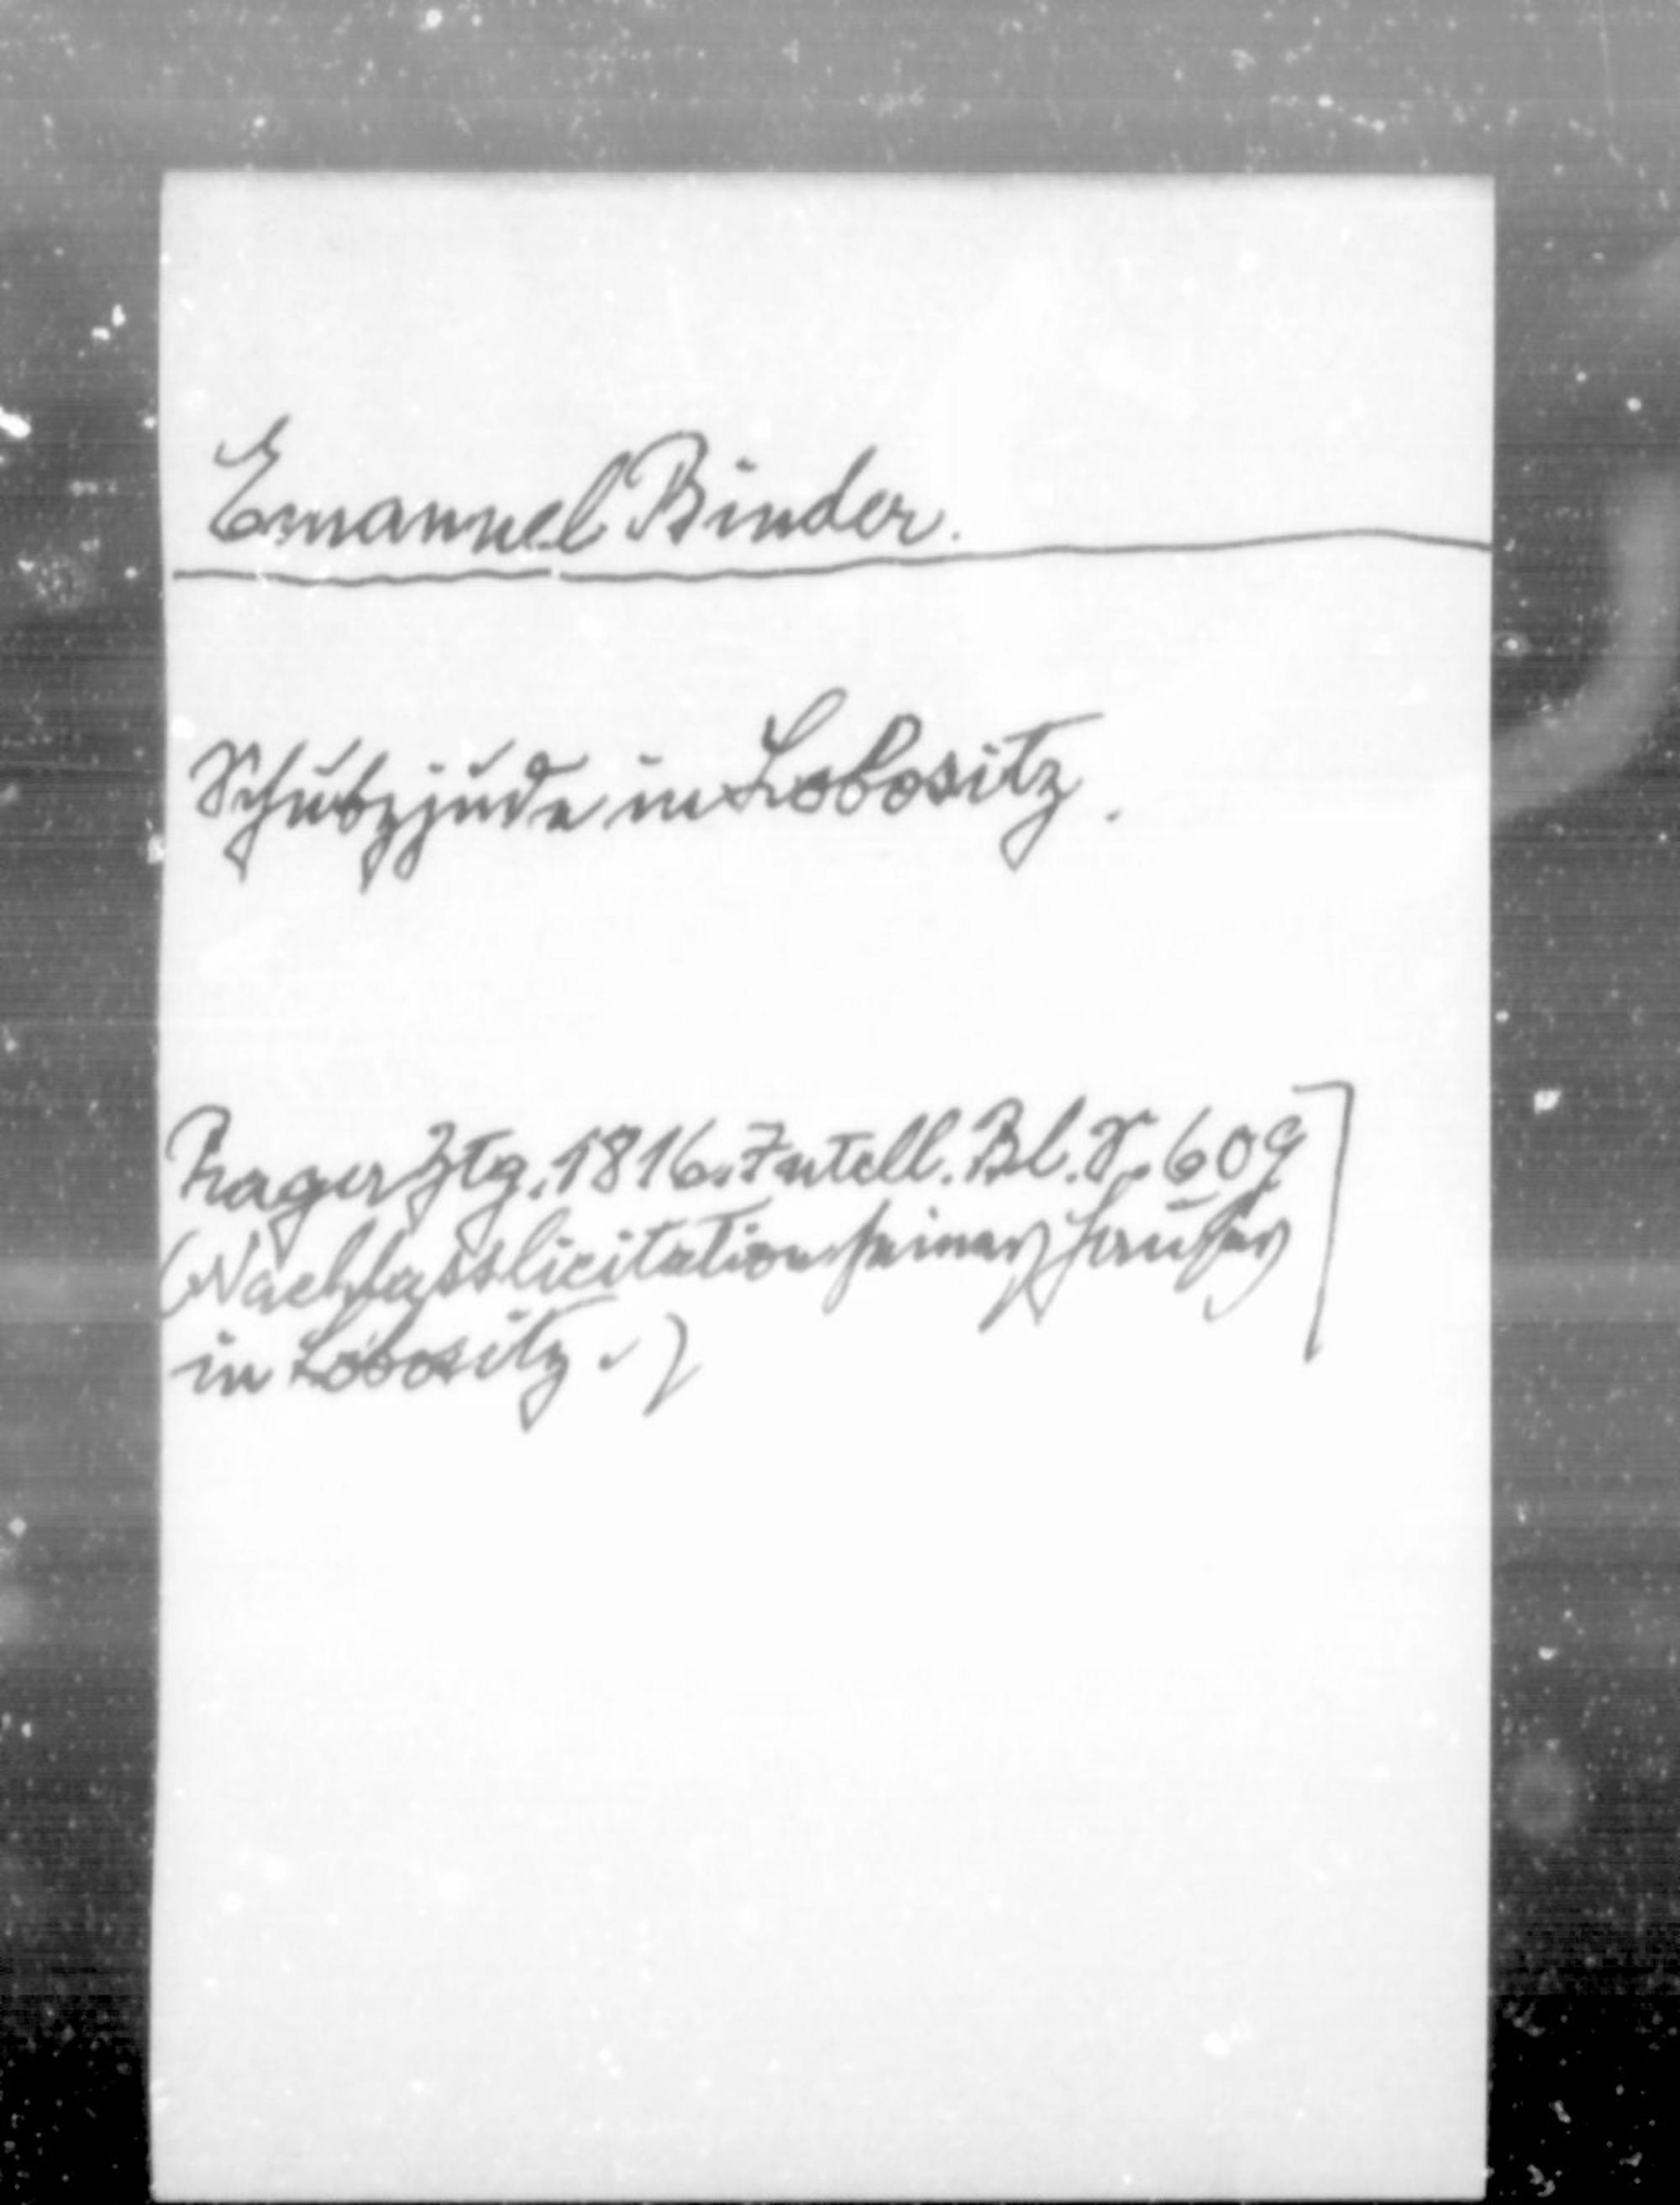 Emanuel Binder.
Schutzjude in Lobositz.
Prager Ztg. 1816. Intell. Bl. S. 609
(Nachlasslicitation seines Hauses
in Lobositz.)